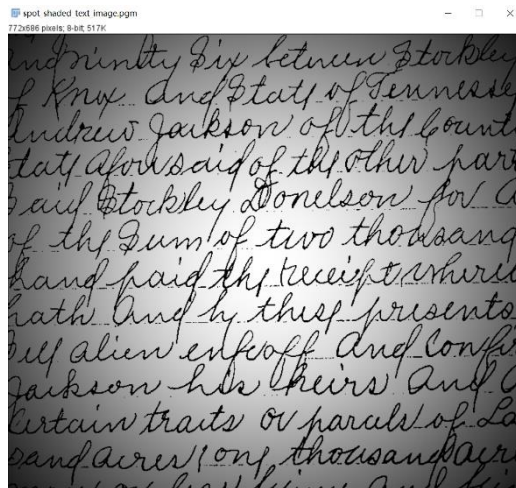 spot shaded text image.pgm
772x686 pixels; 8-bit; 517K
ind ninety Six between Stockley
of Knox And State of Tennesse
Andrew Jackson of the Count
tate aforesaid of the other part
Said Stockley Donelson for a
of the Sum of two thousand
hand paid the receipt where
hath And by these presents
Sell alien enfeoff And Confir
Jackson his heirs And A
Certain traits or parcels of La
sand acres one thousand acre